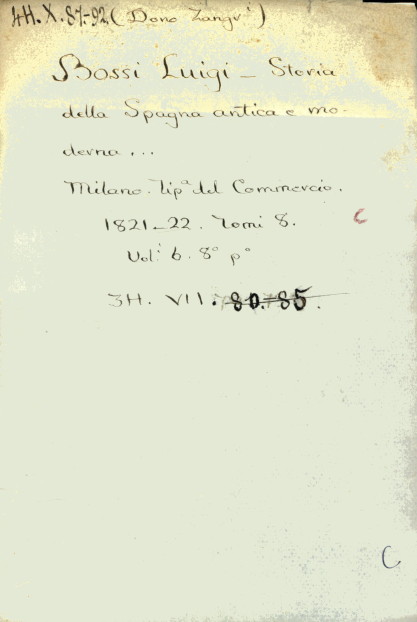 4H. X. 87-92 (Dono Zangr.i)
Bossi Luigi - Storia
della Spagna antica e mo-
derna...
Milano. Tip.a del Commercio.
1821-22. Tomi 8.
C
Vol.i 6. 8° p°
3H. VII. 80-85.
C